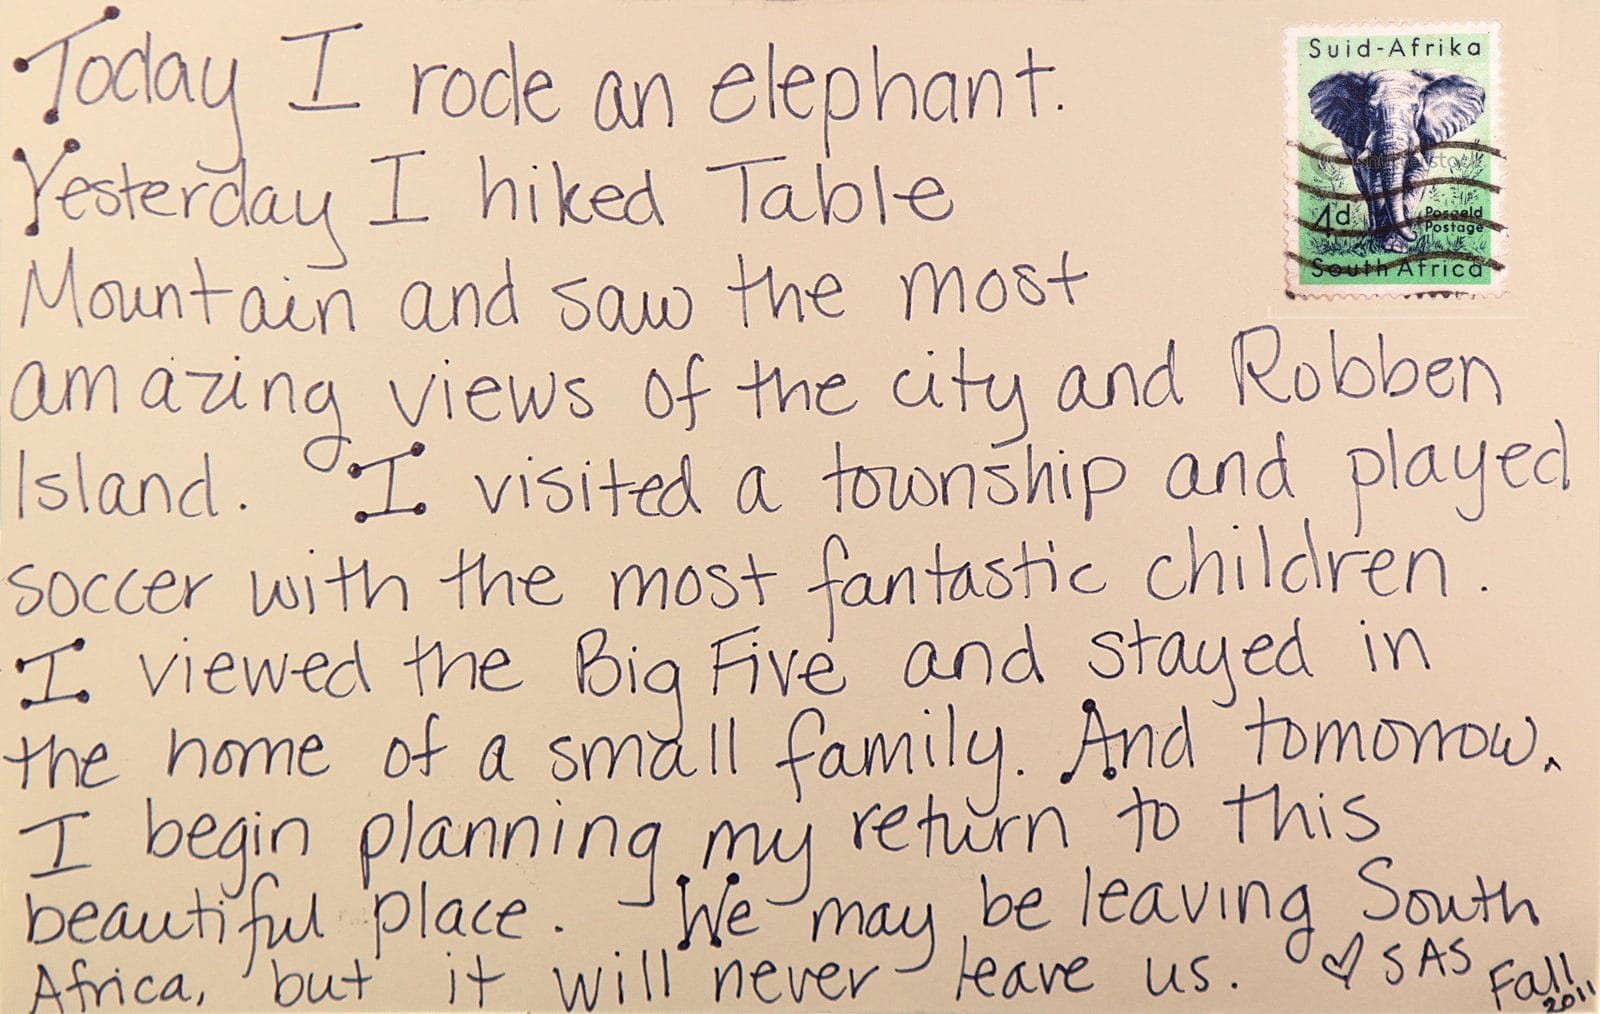 Today I rode an elephant.
Yesterday I hiked Table
Mountain and saw the most
amazing views of the city and Robben
Island. I visited a township and played
soccer with the most fantastic children.
I viewed the Big Five and stayed in
the home of a small family. And tomorrow,
I begin planning my return to this
beautiful place. We may be leaving South
Africa, but it will never leave us. ♡ SAS
Fall
2011
Suid-Afrika
shutterstock
4d
Posgeld
Postage
South Africa